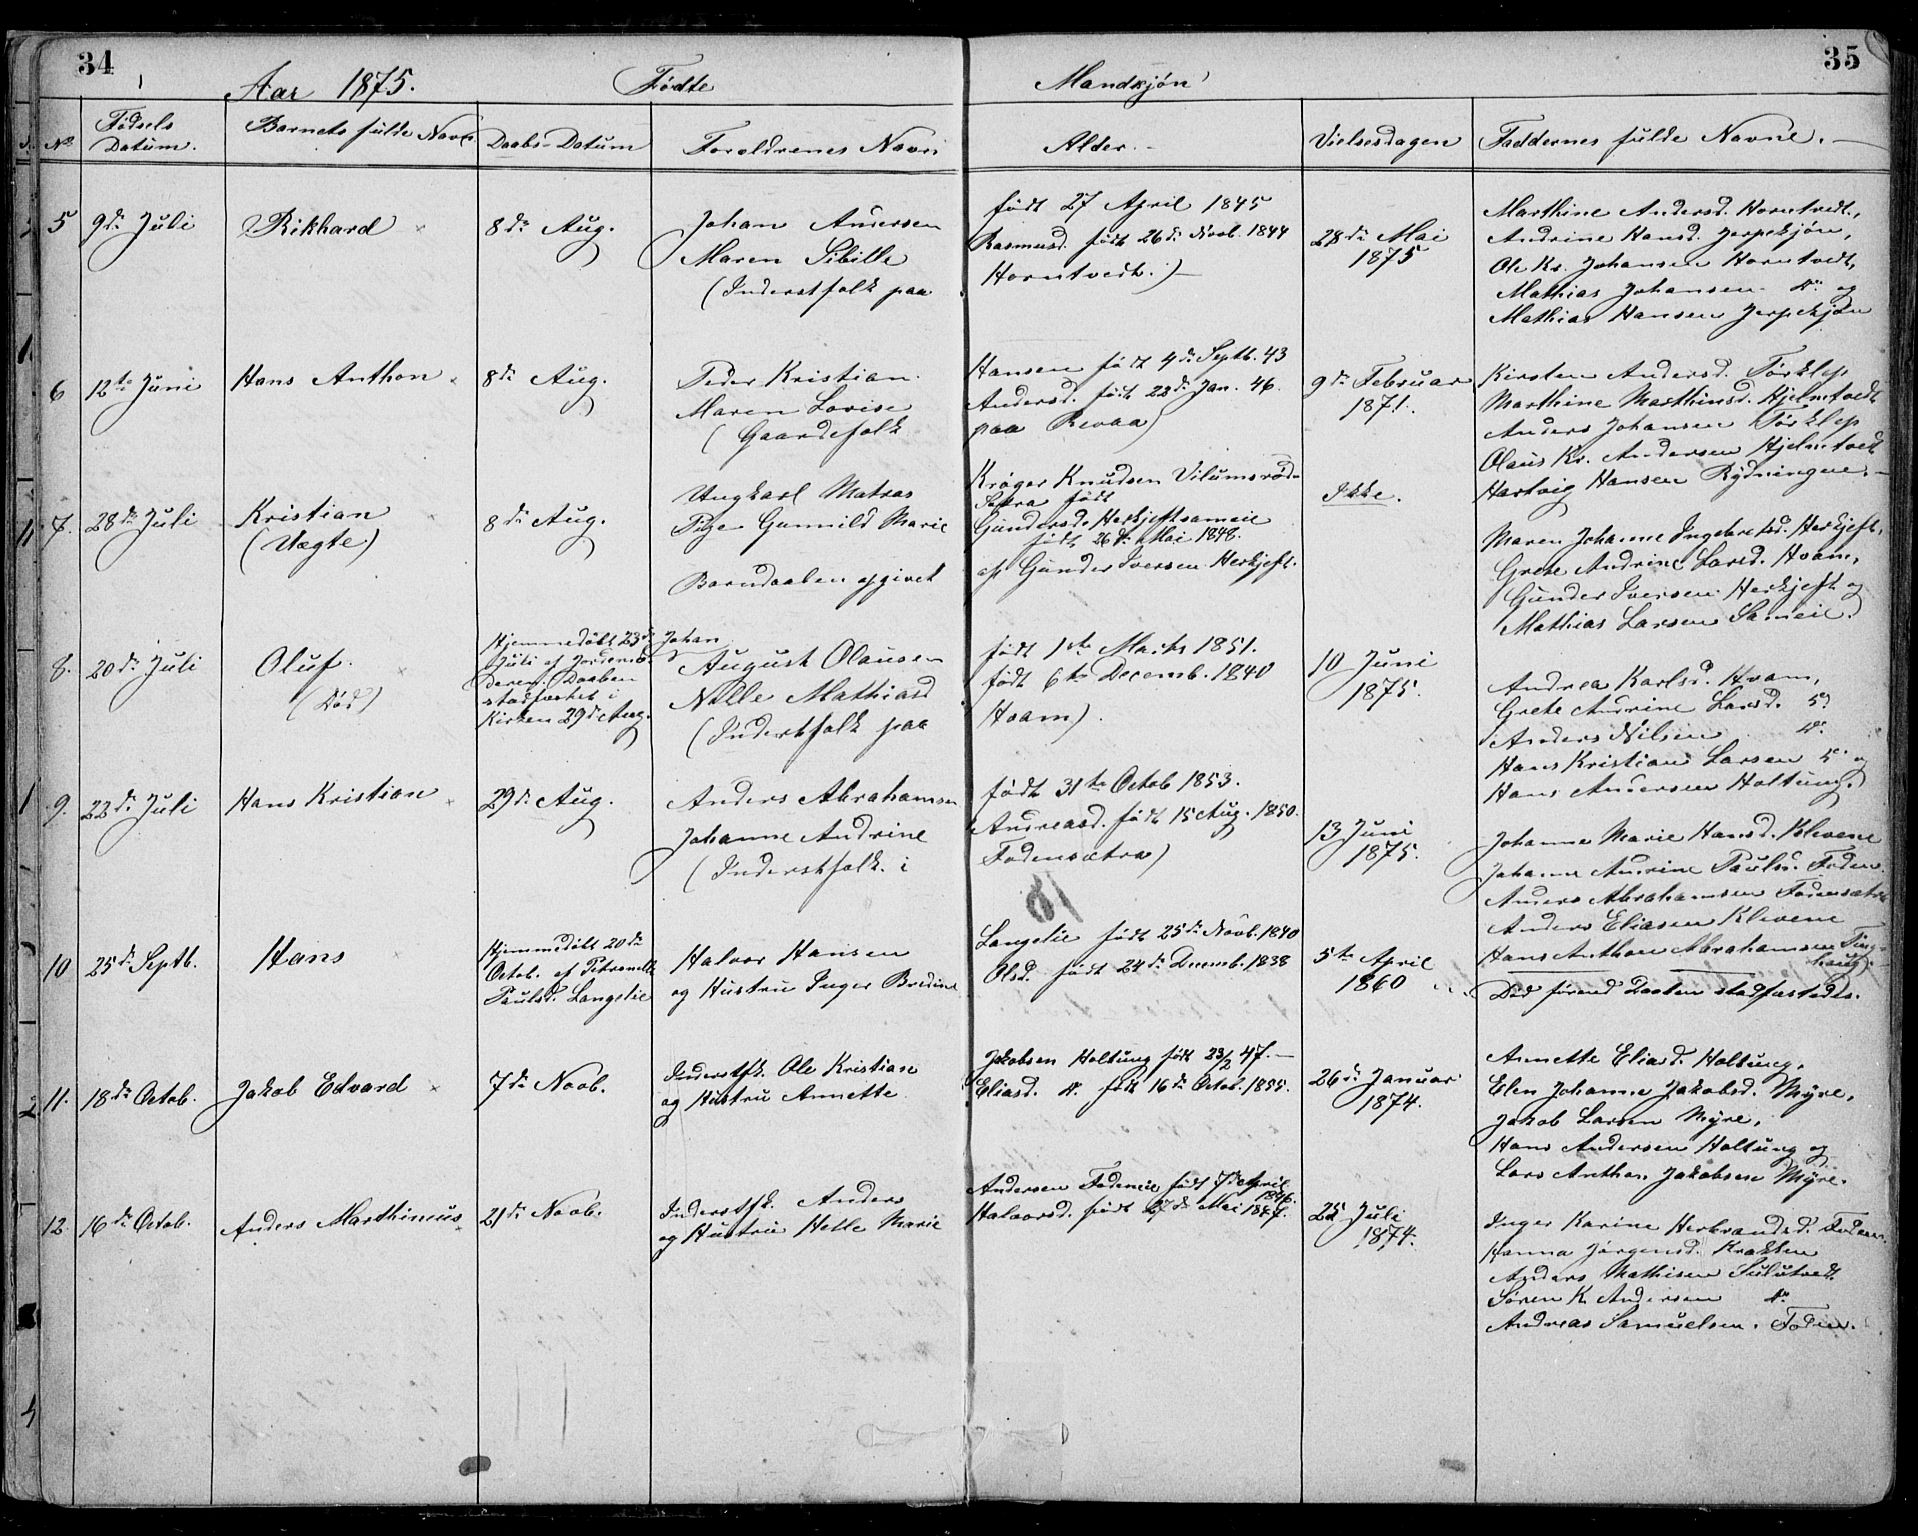 34
35
Aar 1875. Fødte Mandkjøn
No Fødsels Datum. Barnets fulde Navn Daabs-Datum Foroldrenes Navn Alder.- Vielsesdagen Faddernes fulde Navne.
5 9de Juli Rikhard 8de Aug.
Johan Andersen
Maren Sibille
(Inderstfolk paa
født 27 April 1845
Rasmusd. født 26de Novb. 1844
Horntvedt.)
28de Mai
1875
Marthine Andersd. Horntvedt,
Andrine Hansd. Jerpekjøn,
Ole Kr. Johansen Horntvedt,
Mathias Johansen do og
Mathias Hansen Jerpekjøn
6 12te Juni Hans Anthon 8de Aug.
Peder Kristian
Maren Lovise
(Gaardefolk
Hansen født 4de Septb. 43
Andersd. født 22de Jan. 46.
paa Revaa)
9de Februar
1871.
Kirsten Andersd. Tørklep
Marthine Marthinsd. Hjelmtvedt
Anders Johansen Tørklep
Olaus Kr. Andersen Hjelmtvedt
Hartvig Hansen Rydningen.
7. 28de Juli Kristian
(Uægte)
8de Aug.
Ungkarl Matras
Pige Gunnild Marie
Barndaaben opgivet
Krøger Knudsen Vilumsrød-
Sætra født
Gundersd. Herkjeftsameie
født 26de Mai 1848.
af Gunder Iversen Herkjeft.
Ikke.
Maren Johanne Ingebretsd. Herkjeft,
Grete Andrine Larsd. Hvam,
Gunder Iversen Herkjeft og
Mathias Larsen Sameie.
8. 20de Juli Oluf.
(Død)
Hjemmedøbt 23de
Juli af Jordemo-
deren. Daaben
stadfæstet i
Kirken 29de Aug.
Johan
August Olausen
Nille Mathiasd
(Inderstfolk paa
født 1ste Marts 1851.
født 6te Decemb. 1840
Hvam).
10 Juni
1875.
Andrea Karlsd. Hvam,
Grete Andrine Larsd. do
Anders Nilsen do
Hans Kristian Larsen do og
Hans Andersen Holtung.
9. 22de Juli Hans Kristian 29de Aug.
Anders Abrahamsen
Johanne Andrine
(Inderstfolk i
født 31te Octob 1853.
Andreasd. født 15 Aug. 1850.
Fodensætra)
13 Juni
1875.
Johanne Marie Hansd. Klevene
Johanne Andrine Paulsd. Foden
Anders Abrahamsen Fodensætra
Anders Eliasen Klevene
Hans Anthon Abrahamsen Ting-
haug.
10 25de Septb. Hans
Hjemmedøbt 20de
Octob. af Petronelle
Paulsd. Langelie
Halvor Hansen
og Hustru Inger Bredine
Langelie født 25de Novb. 1840
Olsd. født 24de Decemb. 1838
5te April
1860
Død førend Daaben stadfæstedes.
11. 18de Octob. Jakob Edvard 7de Novb.
Inderstfk. Ole Kristian
og Hustru Annette
Jakobsen Holtung født 23/2 47.
Eliasd. do født 16de Octob. 1855.
26de Januar
1874.
Annette Eliasd. Holtung,
Elen Johanne Jakobsd. Myre,
Jakob Larsen Myre,
Hans Andersen Holtung og
Lars Anthon Jakobsen Myre.
12. 16de Octob. Anders Marthinius 21de Novb.
Inderstfk. Anders
og Hustru Helle Marie
Andersen Fodeneie født 7de April
1846.
Halvorsd. født 27de Mai 1847.
25 Juli
1874.
Inger Karine Herbrandsd. Foden.
Hanna Jørgensd. Krakken
Anders Mathisen
Søren K. Andersen do
Andreas Samuelsen. Foden.